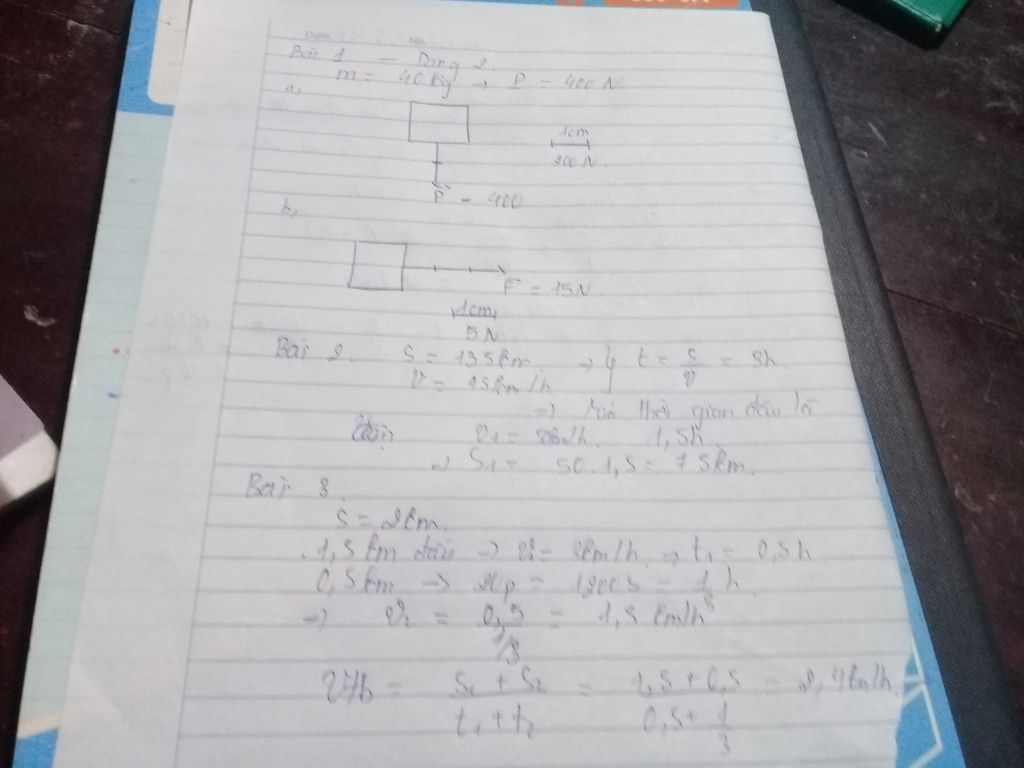 Date No.
Bài 1 - Dạng 2.
m = 40 kg → P = 400 N
a,
1cm
200 N.
P = 400
b,
F = 15N.
1cm
5 N
Bài 2. S = 135km → } t = s/v = 3h
v = 45km/h
=> thời gian đầu là
v₁ = 50km/h. 1,5h.
→ S₁ = 50.1,5 = 75km.
Bài 3.
S = 2km.
1,5 km đầu → v = 3km/h → t₁ = 0,5h
0,5km → 20p = 1200s = 1/3 h
=> v₂ = 0,5 / 1/3 = 1,5 km/h
vtb = S₁ + S₂ / t₁ + t₂ = 1,5 + 0,5 / 0,5 + 1/3 = 2,4km/h.